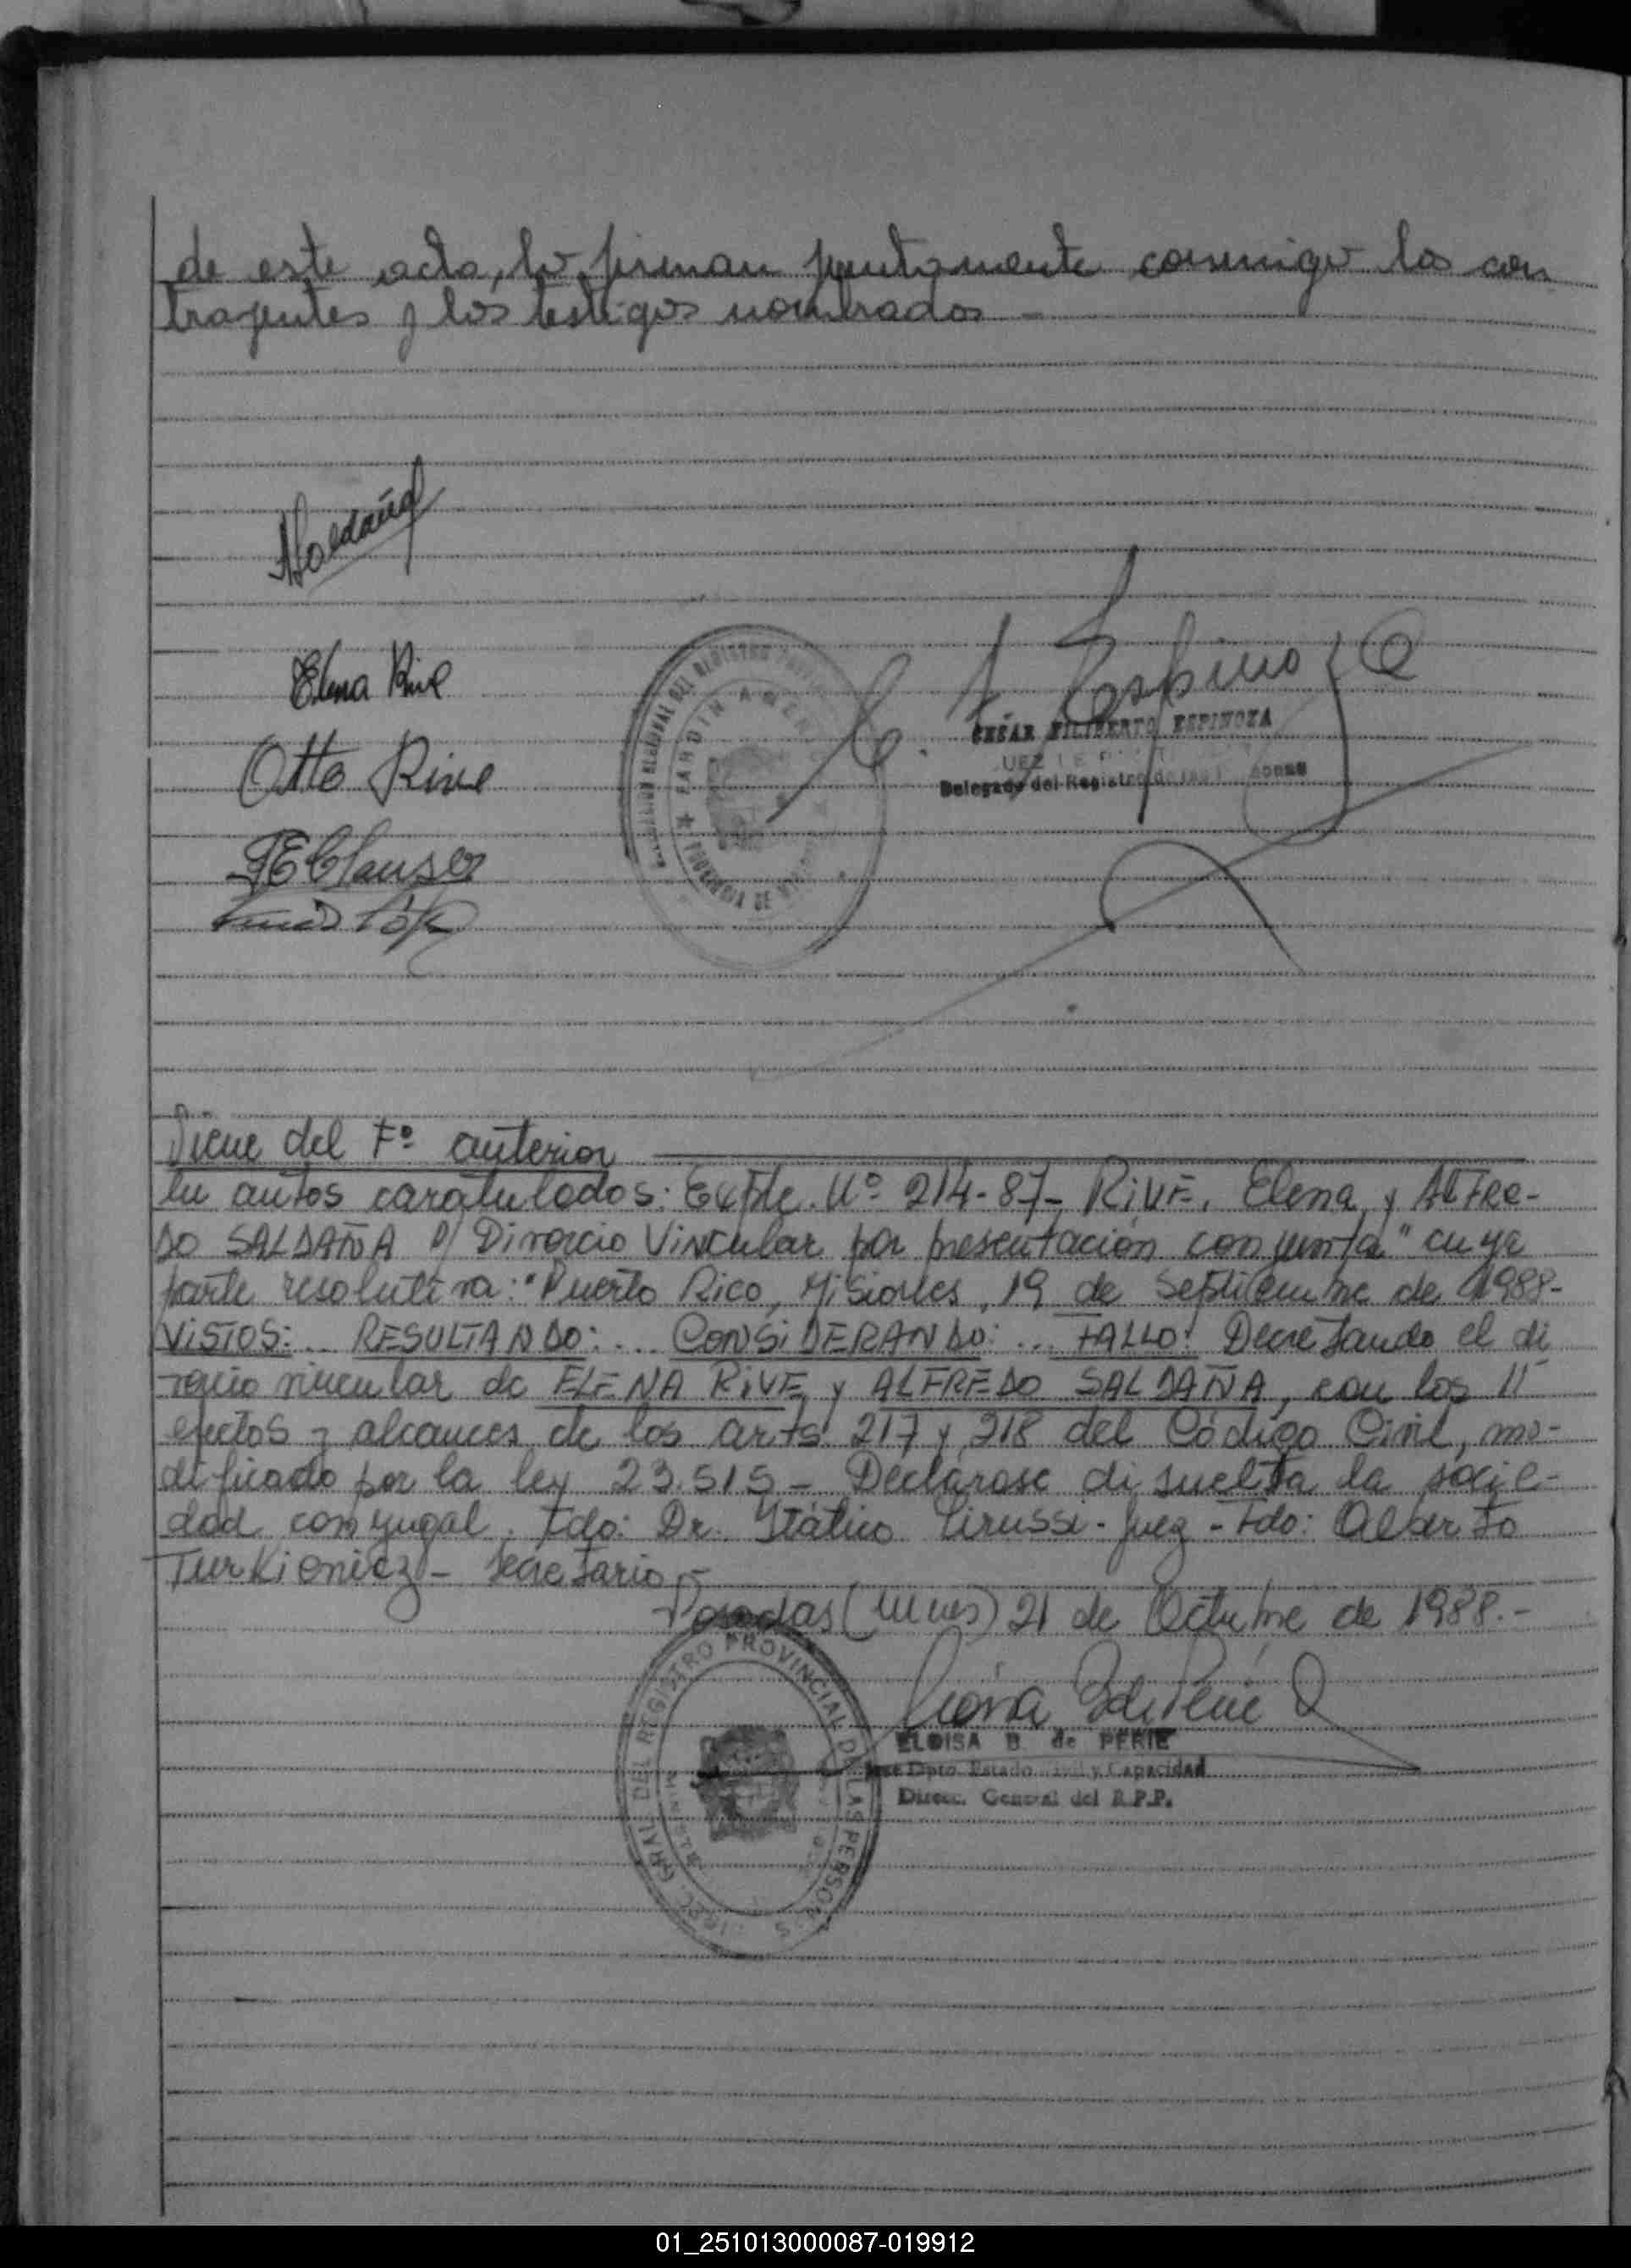 de este acta, lo firman juntamente conmigo los con
trayentes y los testigos nombrados -
ASaldaña
Elena Rive
Otto Rive
C. F. Espinoza
CESAR FILIBERTO ESPINOZA
JUEZ DE
Delegado del Registro de las
DEL REGISTRO
JARDIN AMERICA
PROVINCIA DE MISIONES
Viene del Fº anterior
En autos caratulados: Expte. Nº 214-87- RIVE, Elena y ALFRE-
DO SALDAÑA s/ Divorcio Vincular por presentación conjunta" cuya
parte resolutiva: "Puerto Rico, Misiones, 19 de Septiembre de 1988-
VISTOS:... RESULTANDO:... CONSIDERANDO:... FALLO: Decretando el di
vorcio vincular de ELENA RIVE y ALFREDO SALDAÑA, con los 11
efectos y alcances de los arts 217 y 218 del Código Civil, mo-
dificado por la ley 23.515 - Declárase disuelta la socie-
dad conyugal. Fdo: Dr. Itálico - Juez - Fdo: Alberto
Turkienicz - Secretario -
Posadas (Mnes) 21 de Octubre de 1988.-
ELOISA B. de PERIE
Jefe Dpto. Estado Civil y Capacidad
Direcc. General del R.P.P.
GRAL DEL REGISTRO PROVINCIAL DE LAS PERSONAS
01_251013000087-019912